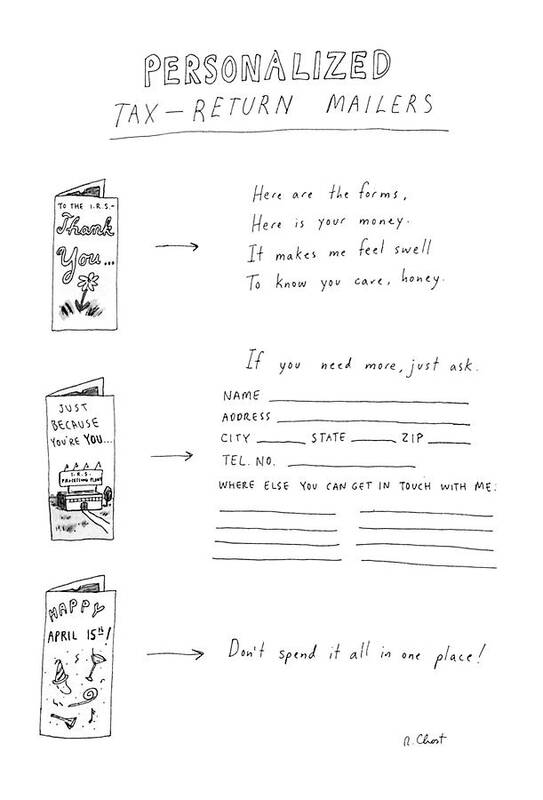 PERSONALIZED
TAX-RETURN MAILERS
TO THE I.R.S.-
Thank
You...
Here are the forms,
Here is your money.
It makes me feel swell
To know you care, honey.
JUST
BECAUSE
YOU'RE YOU...
I.R.S.
PROCESSING PLANT
If you need more, just ask.
NAME
ADDRESS
CITY STATE ZIP
TEL. NO.
WHERE ELSE YOU CAN GET IN TOUCH WITH ME:
HAPPY
APRIL 15th!
Don't spend it all in one place!
R. Chast